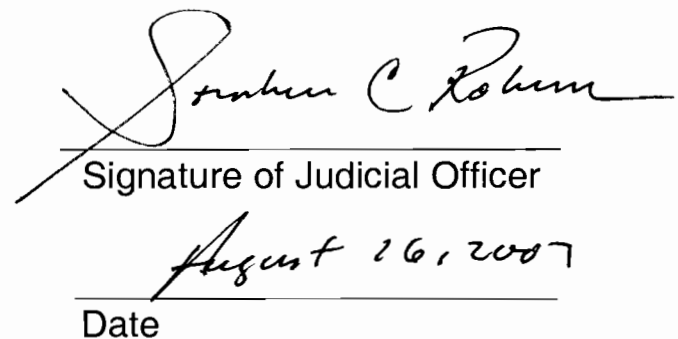 Stephen C Robinson
Signature of Judicial Officer
August 16, 2007
Date